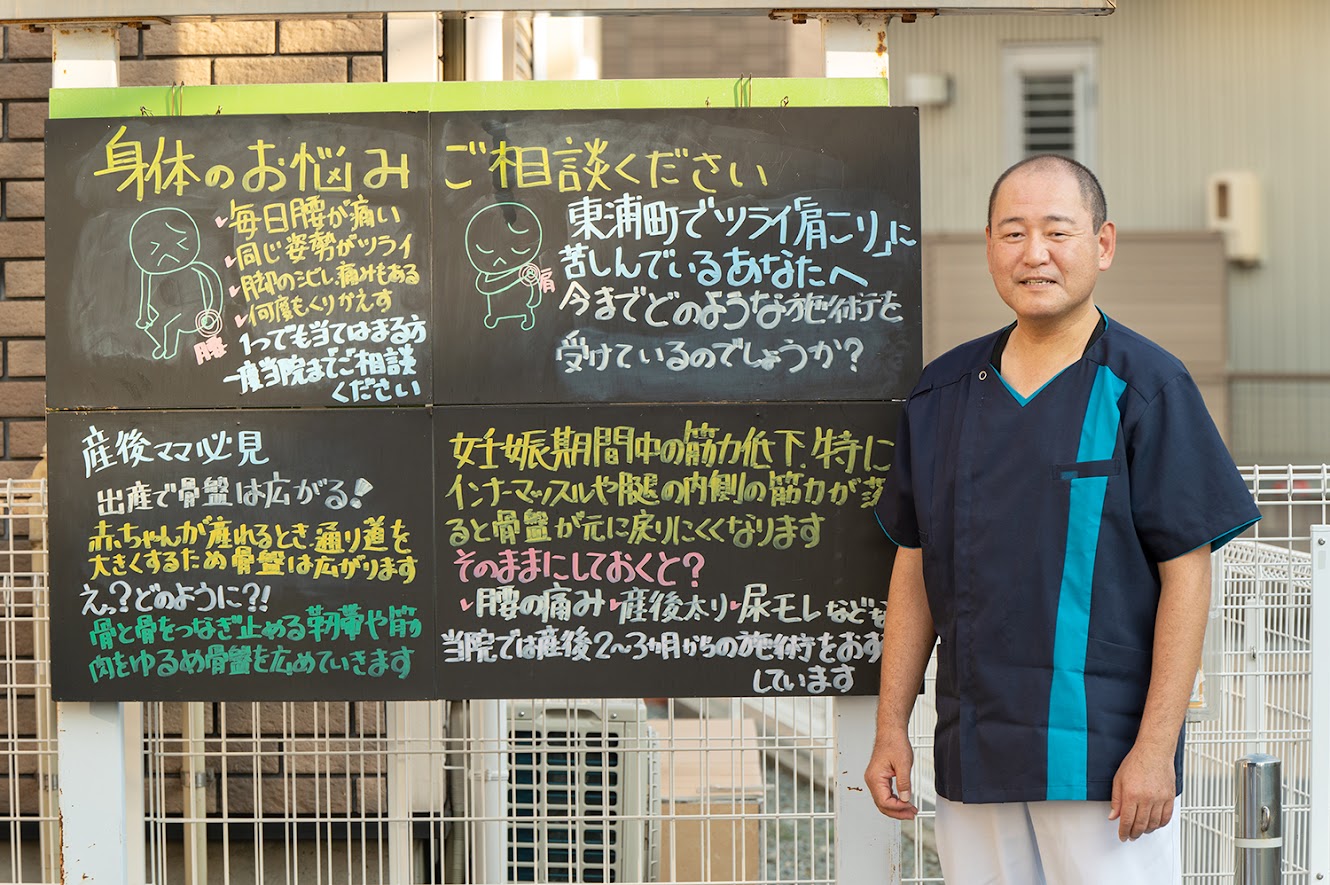 身体のお悩み
毎日腰が痛い
同じ姿勢がツライ
脚のシビレ、痛みもある
何度もくりかえす
腰
1つでも当てはまる方
一度当院までご相談
ください
ご相談ください
東浦町でツライ「肩こり」に
苦しんでいるあなたへ
肩
今までどのような施術を
受けているのでしょうか?
産後ママ必見
出産で骨盤は広がる!
赤ちゃんが産れるとき、通り道を
大きくするため骨盤は広がります
えっ?どのように?!
骨と骨をつなぎ止める靭帯や筋
肉をゆるめ骨盤を広めていきます
妊娠期間中の筋力低下!特に
インナーマッスルや腿の内側の筋力が落
ると骨盤が元に戻りにくくなります
そのままにしておくと?
腰の痛み 産後太り 尿モレなどを
当院では産後2〜3ヶ月からの施術をおす
しています